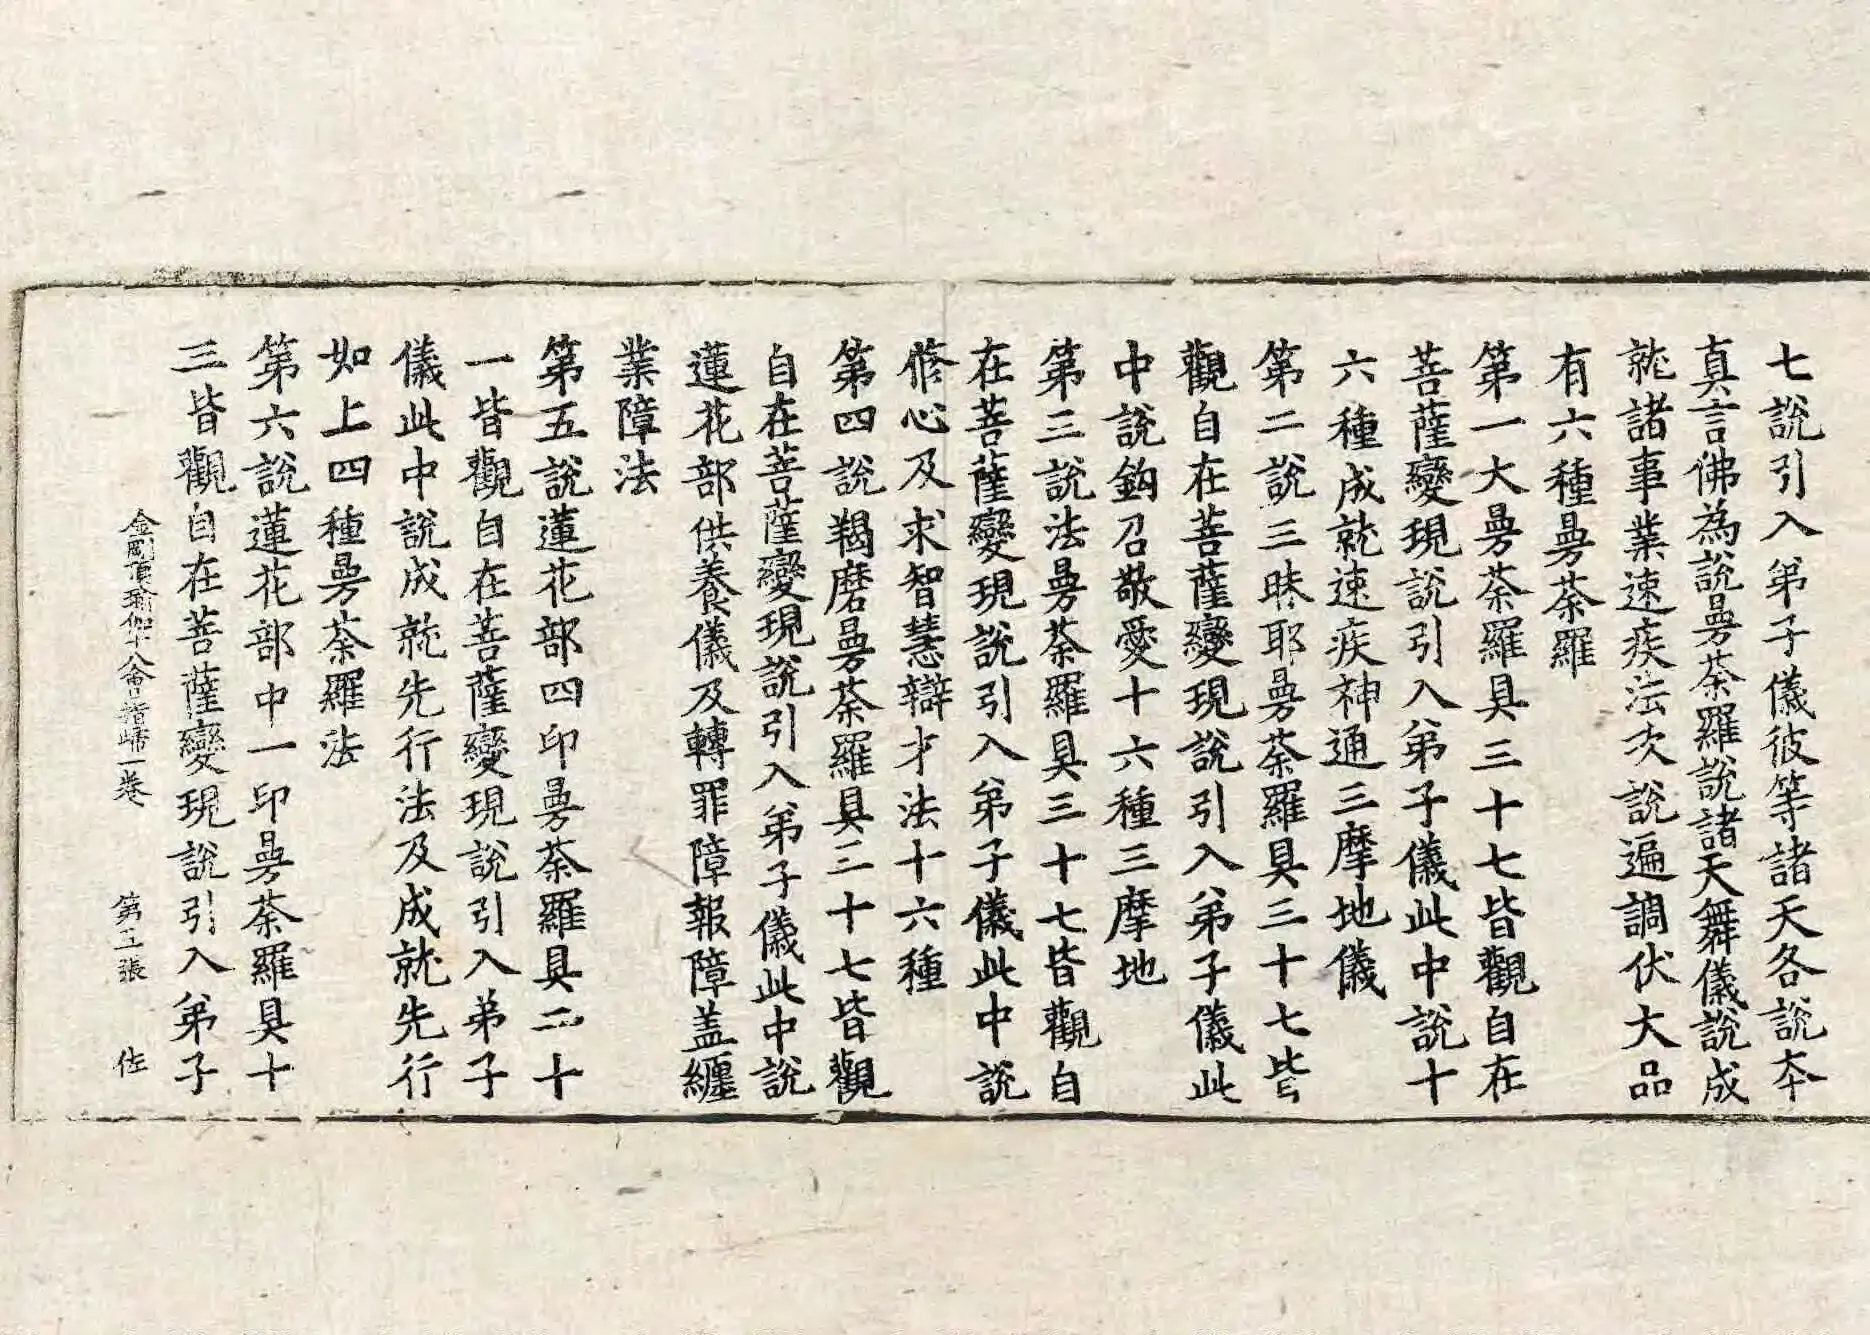 七說引入弟子儀彼等諸天各說本
真言佛為說曼荼羅說諸天舞儀說成
就諸事業速疾法次說遍調伏大品
有六種曼荼羅
第一大曼荼羅具三十七皆觀自在
菩薩變現說引入弟子儀此中說十
六種成就速疾神通三摩地儀
第二說三昧耶曼荼羅具三十七皆
觀自在菩薩變現說引入弟子儀此
中說鉤召敬愛十六種三摩地
第三說法曼荼羅具三十七皆觀自
在菩薩變現說引入弟子儀此中說
修心及求智慧辯才法十六種
第四說羯磨曼荼羅具三十七皆觀
自在菩薩變現說引入弟子儀此中說
蓮花部供養儀及轉罪障報障蓋纏
業障法
第五說蓮花部四印曼荼羅具二十
一皆觀自在菩薩變現說引入弟子
儀此中說成就先行法及成就先行
如上四種曼荼羅法
第六說蓮花部中一印曼荼羅具十
三皆觀自在菩薩變現說引入弟子
金剛頂瑜伽十八會指歸一卷 第五張 佐